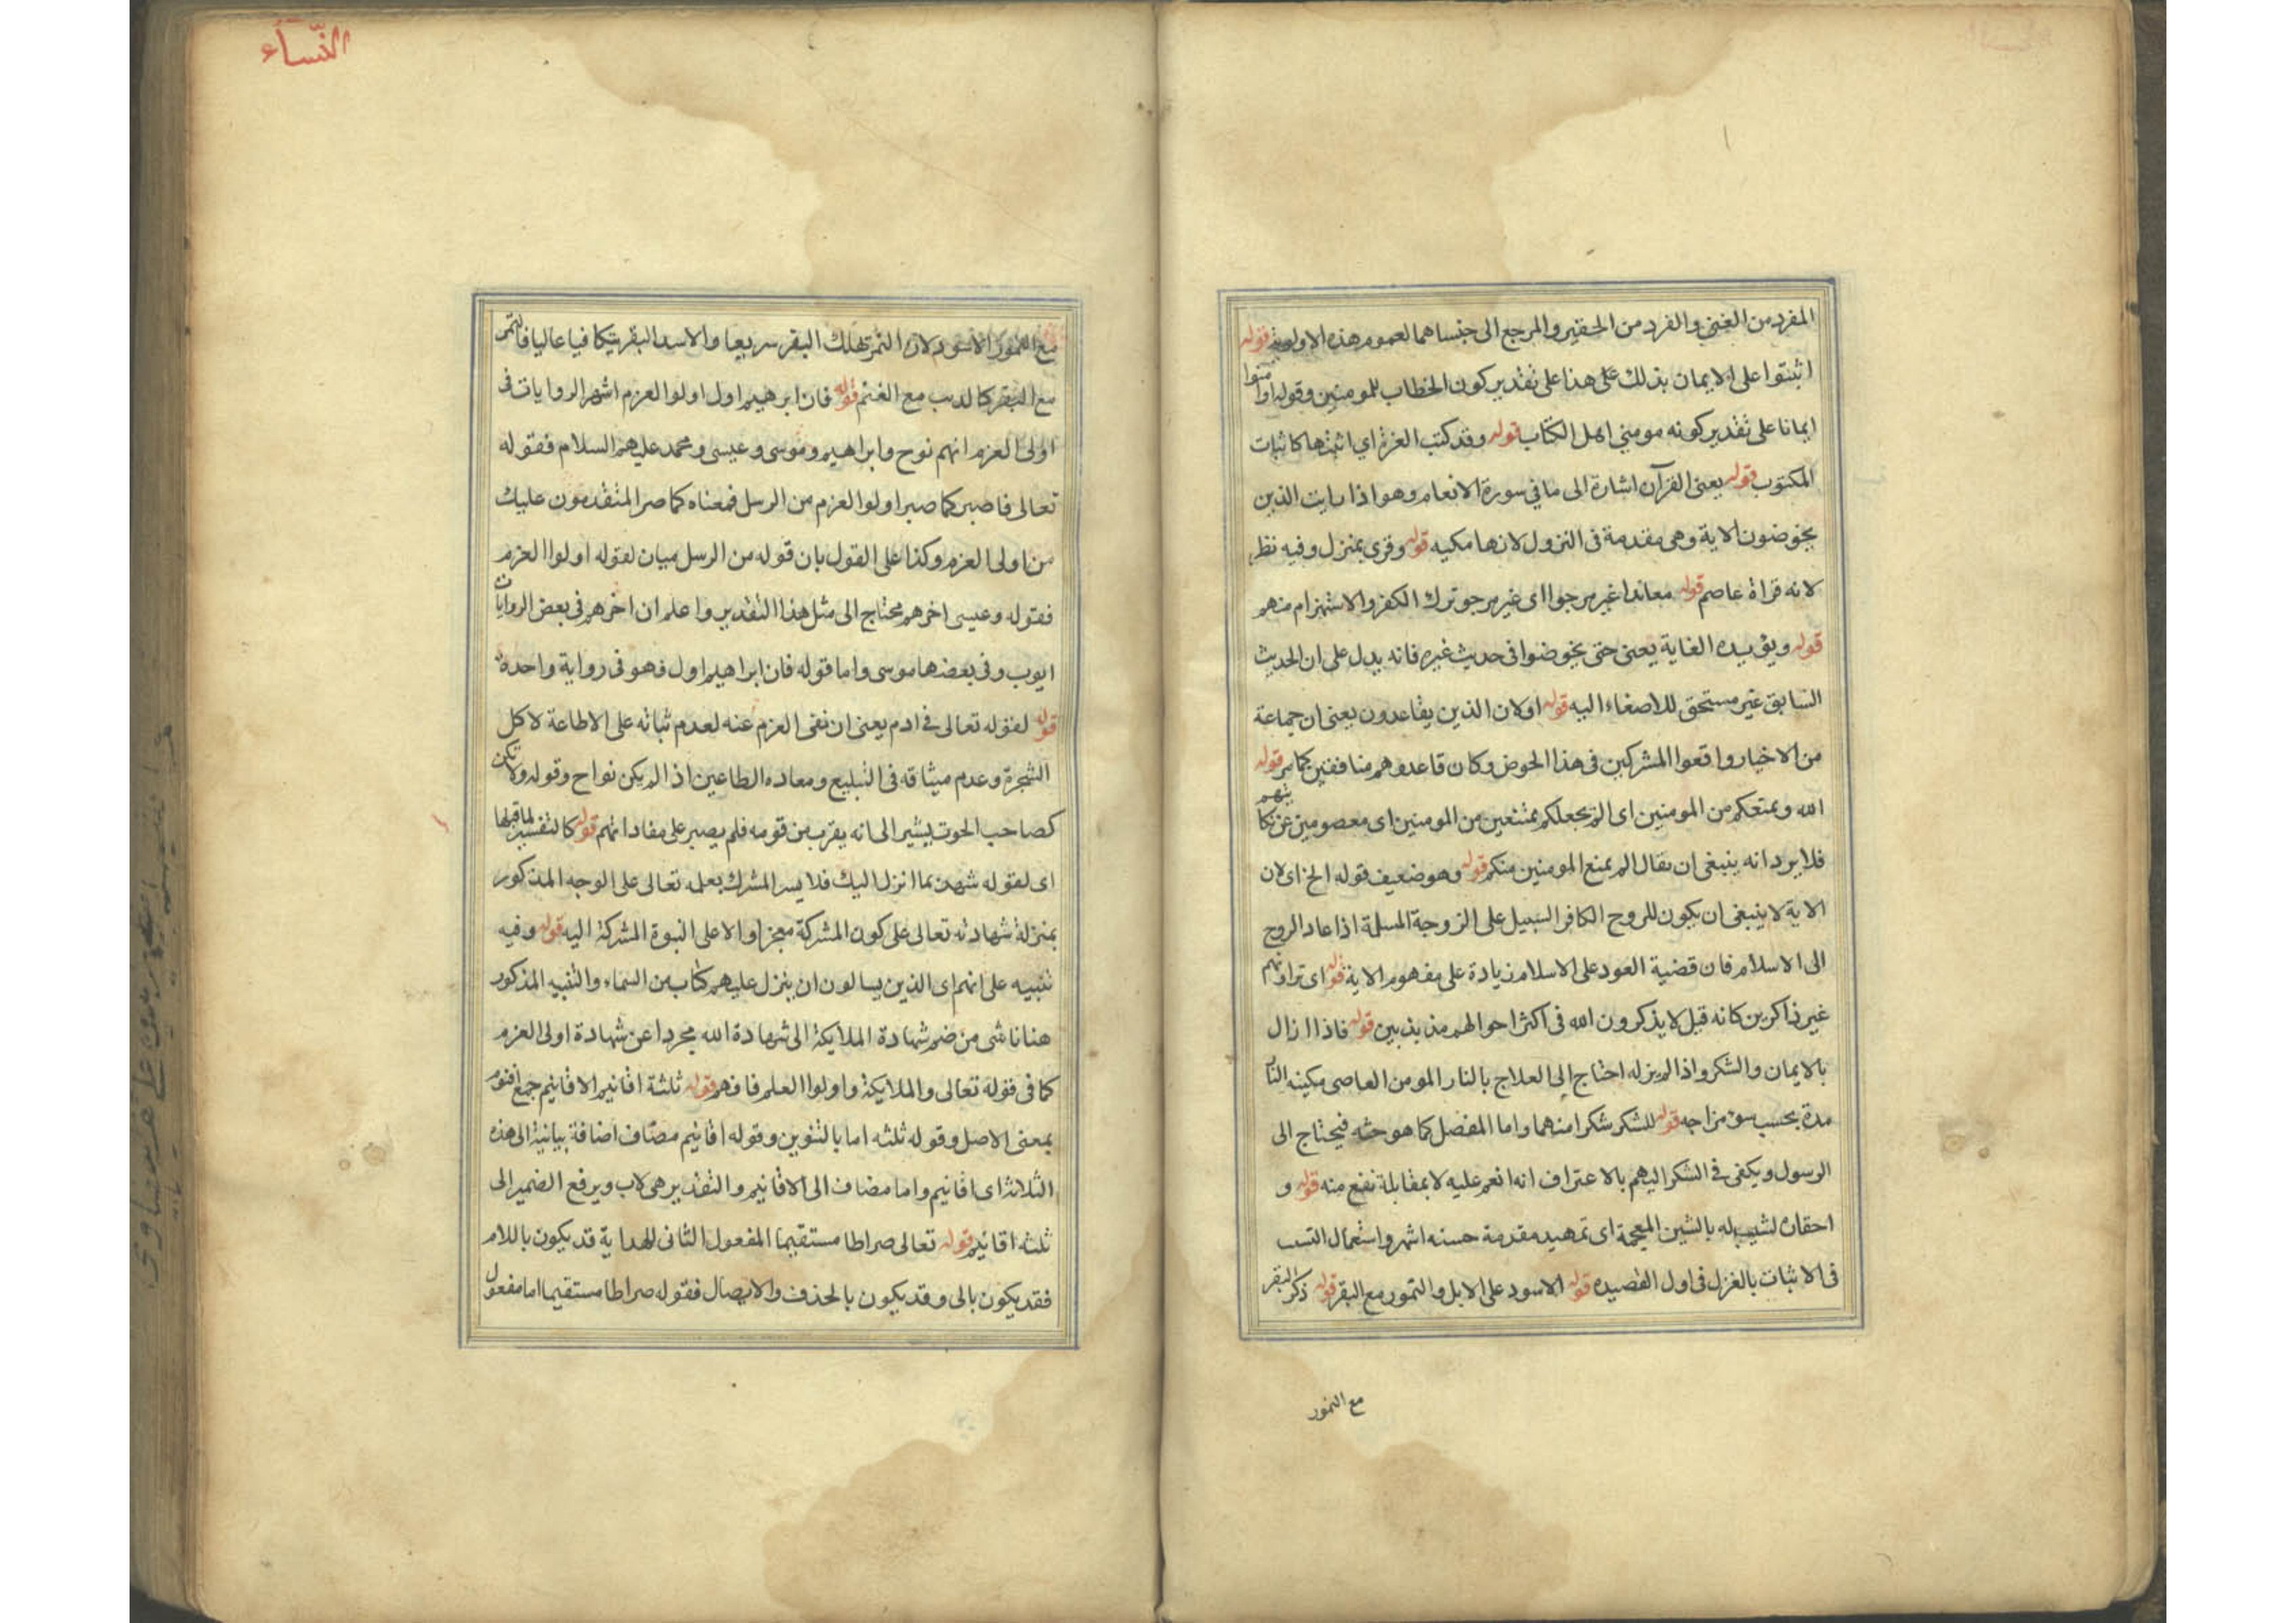 المفرد من الغنى والفرد من الحقير والمرجع الى جنساهما لعموم هذه الاولوية قوله
اثبتوا على الايمان بذلك على هذا على تقدير كون الخطاب للمومنين وقوله او امنوا
ايمانا على تقدير كونه مومنى اهل الكتاب قوله وقد كتب العزة اي اثبتها كاثبات
المكتوب قوله يعنى القرآن اشارة الى ما في سورة الانعام وهو اذا رايت الذين
يخوضون الاية وهى مقدمة فى النزول لانها مكيه قوله وقرى بمنزل وفيه نظر
لانه قراة عاصم قوله معاندا غير مرجوا اى غير مرجو ترك الكفر والاستهزام منهم
قوله ويؤيده الغاية يعنى حتى يخوضوا فى حديث غيره فانه يدل على ان الحديث
السابق غير مستحق للاصغاء اليه قوله اولان الذين يقاعدون يعنى ان جماعة
من الاخيار واقعوا المشركين فى هذا الخوض وكان قاعدوهم منافقين كما مر قوله
الله ونمتعكم من المومنين اى الم نجعلكم ممتنعين من المومنين اى معصومين عن
فلا يرد انه ينبغى ان يقال الم يمنع المومنين منكم قوله وهو ضعيف قوله الخ اى لان
الاية لا ينبغى ان يكون للروح الكافر السبيل على الزوجة المسلمة اذا عاد الروح
الى الاسلام فان قضية العود على الاسلام زيادة على مفهوم الاية قوله اى تراونهم
غير ذاكرين كانه قبل لا يذكرون الله فى اكثر احوالهم مذبذبين قوله فاذا ازال
بالايمان والشكر واذا لم يزله احتاج الى العلاج بالنار المومن العاصى
مدة بحسب سوء مزاجه قوله للشكر شكرا منهما واما المفصل كما هو حقه فيحتاج الى
الرسول ويكفى فى الشكر اليهم بالاعتراف انه انعم عليه لا بمقابلة نفع منه قوله و
احقاق لشبيبه له بالشين المعجمة اى تمهيد مقدمة حسنه اشهر واستعمال
فى الاثبات بالغزل فى اول القصيده قوله الاسود على الابل والنمور مع البقر قوله ذكر البقر
مع النمور
النساء
مع النمور الاسود لان النمر تهلك البقر سريعا والاسد البقر عاليا فالنمر
مع البقر كالديب مع الغنم قوله فان ابرهيم اول اولوا العزم اشهر الروايات فى
اولى العزم انهم نوح وابراهيم وموسى وعيسى ومحمد عليهم السلام فقوله
تعالى فاصبر كما صبر اولوا العزم من الرسل فمعناه كما صبر المتقدمون عليك
من اولى العزم وكذا على القول بان قوله من الرسل بيان لقوله اولوا العزم
فقوله وعيسى اخرهم محتاج الى مثل هذا التقدير واعلم ان اخرهم فى بعض الروايات
ايوب وفى بعضها موسى واما قوله فان ابراهيم اول فهو فى رواية واحدة
قوله لقوله تعالى فى ادم يعنى ان نفى العزم عنه لعدم ثباته على الاطاعة لا كل
الشجرة وعدم ميثاقه فى التبليغ ومعاده الطاعين اذ الم يكن نواح وقوله ولا تكن
كصاحب الحوت يشير الى انه يقرب من قومه فلم يصبر على مفاداتهم قوله كالتفسير لما قبلها
اى لقوله شهد بما انزل اليك فلا يسر المشرك بعلمه تعالى على الوجه المذكور
بمنزلة شهادته تعالى على كون المشركة معجزا والا على النبوة المشركة اليه قوله وفيه
تنبيه على انهم اى الذين يسالون ان ينزل عليهم كتاب من السماء والتنبيه المذكور
هنا ناشى من ضم شهادة الملايكة الى شهادة الله مجردا عن شهادة اولى العزم
كما فى قوله تعالى والملايكة واولوا العلم فافهم قوله ثلثة اقانيم الاقانيم جمع اقنوم
بمعنى الاصل وقوله ثلثه اما بالتنوين وقوله اقانيم مضاف اضافة بيانية الى هذه
الثلاثة اى اقانيم واما مضاف الى الاقانيم والتقدير هى لاب ويرفع الضمير الى
ثلثه اقانيم قوله تعالى صراطا مستقيما المفعول الثانى للهداية قد يكون باللام
فقد يكون بالى وقد يكون بالحذف والايصال فقوله صراطا مستقيما اما مفعول